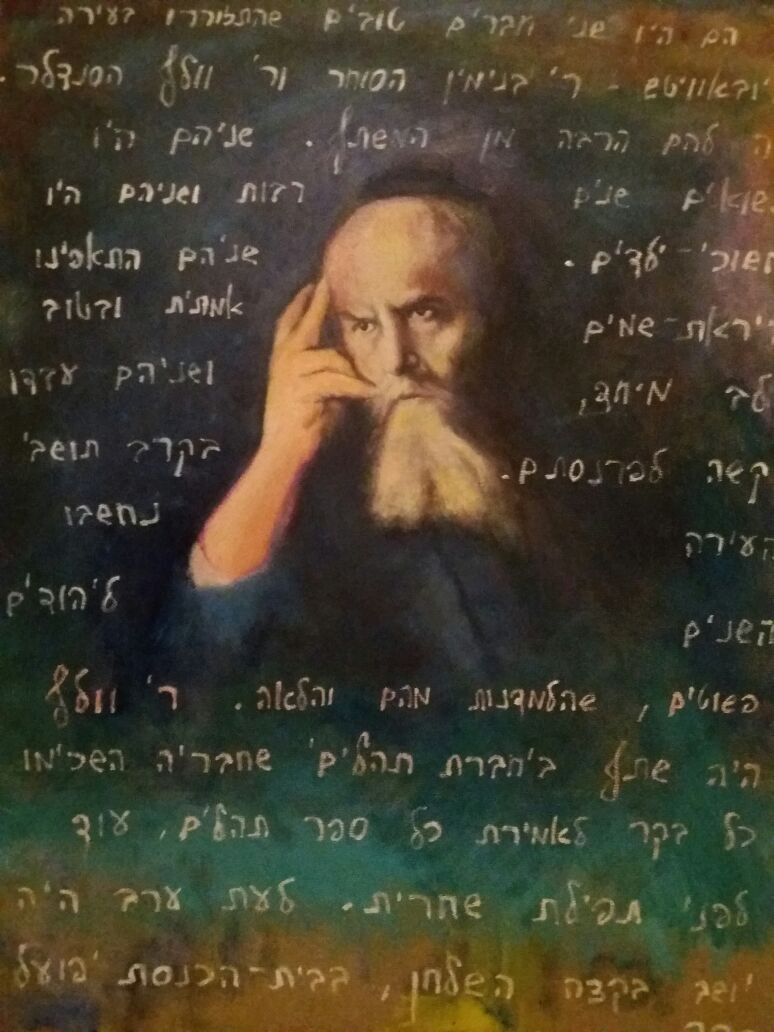 הם היו שני חברים טובים שהתגוררו בעירה
יובאוויטש - ר' בנימין הסוחר ור' וולף הסנדלר.
ה להם הרבה מן המשתף. שניהם היו
שואים שנים רבות ושניהם היו
חשוכי-ילדים. שניהם התאפינו
יראת-שמים אמתית ובטוב
לב מיחד, ושניהם עבדו
קשה לפרנסתם. בקרב תושבי
העירה נחשבו
השנים ליהודים
פשוטים, שהלמדנות מהם והלאה. ר' וולף
היה שתף ב'חברת תהלים' שחבריה השכימו
כל בקר לאמירת כל ספר תהלים, עוד
לפני תפילת שחרית. לעת ערב היה
יושב בקצה השלחן, בבית-הכנסת 'פועל